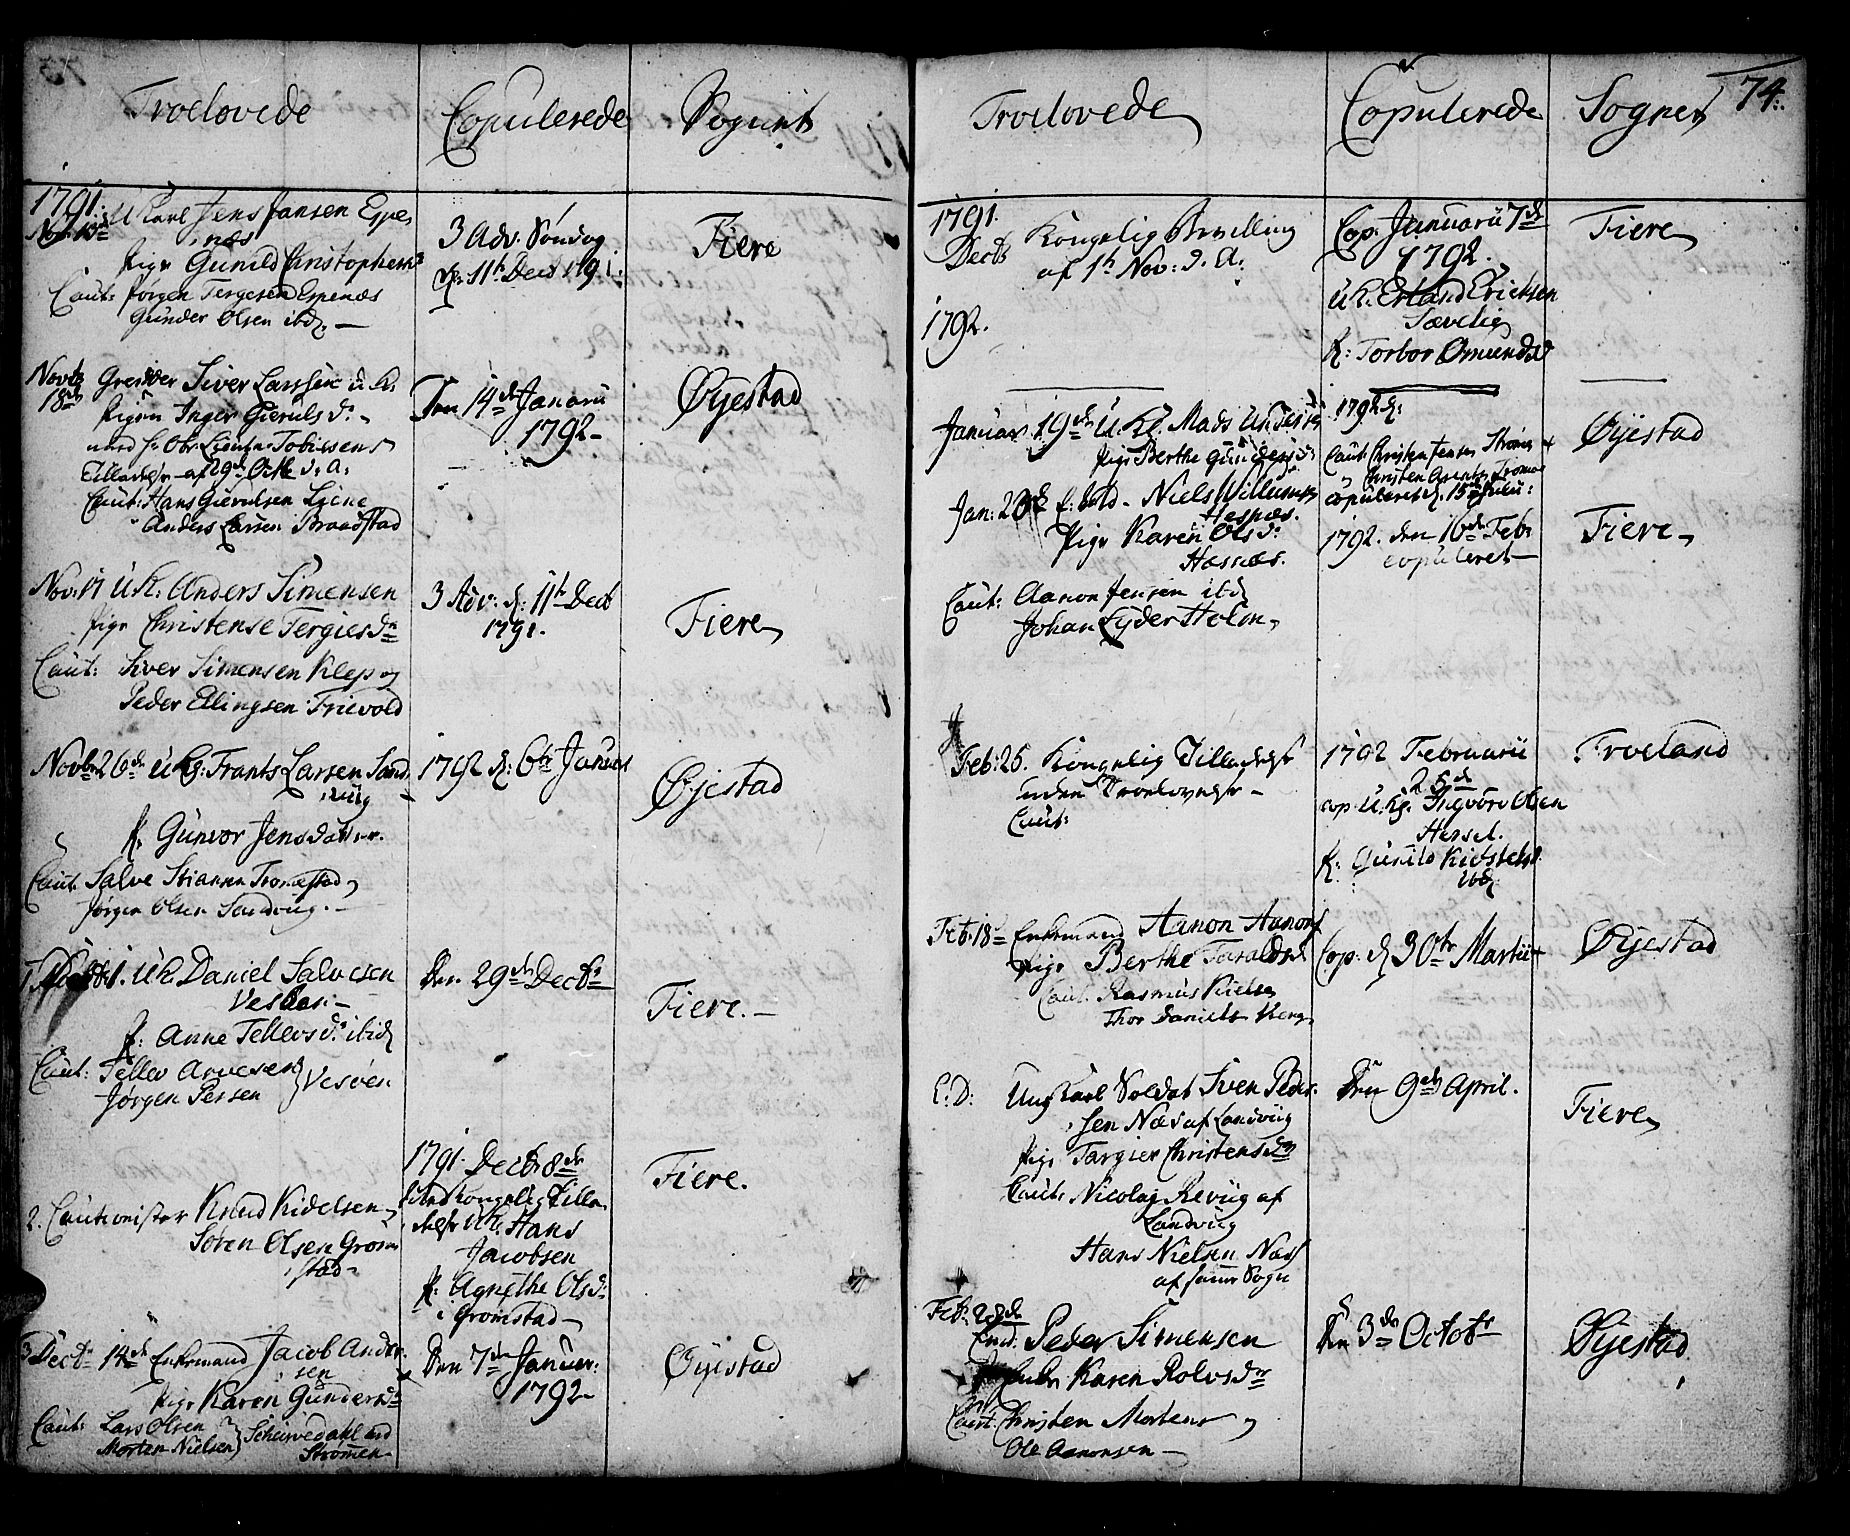 Troelovede
Copulerede
Sognet
1791.
Nov: 13de
U Karl Jens Jansen Espe,
næs
Pige Gunild Christophersd.
Caut: Jörgen Tergesen Espenæs
Gunder Olsen ibd.
3 Adv. Söndag
d: 11te Decb 1791.
Fiere
Novbr
18de
Siver Larssen u. K.
Pigen Inger Gieruls d.
med Hr Obr. Lieutn: Tobiesens
Tilladelse af 29de Octb d. A.
Caut: Hans Gierulsen
Anders Larsen Braadstad
Den 14de Januarii
1792
Öyestad
Nov: U K: Anders Simensen
Pige Christense Tergiesdr
Caut: Siver Simensen Klep og
Peder Ellingsen Frievold
3 Adv: d: 11te Decb
1791.
Fiere
Novbr 26de U Kg: Frants Larsen Sand,
viig
P. Gunvor Jensdatter.
Caut. Salve Stiansen Tromestad,
Jörgen Olsen Sandviig.
1792 d: 6te Januar
Öyestad
1. U K Daniel Salvesen
P: Anne Tellevsdr ibid
Caut: Tellev Arvesen
Jörgen Persen } Vesöen
Den 29de Decbr
Fiere.
2. Cautionister Knud Kidelsen
Sören Olsen Grom
stad
1791. Decb: 8de
med Kongelig Tilla
delse U K. Hans
Jacobsen
P: Agnethe Olsdr
Gromstad
Fiere.
3 Decbr 14de Enkemand Jacob Ander,
sen
Pige Karen Gundersdr
Caut: Lars Olsen
Morten Nielsen } ved
Strömen
Den 7de Januar:
1792
Öyestad
Troelovede
Copulerede
Sognet
74.
1791.
Decb
Kongelig Bevilling
af 1te Nov: d. A:
1792.
Cop. Januarii 7de
1792.
U K. Erland Ericksen
Sævelig
P: Torbor Omundsd
Fiere
Januar 19de U. K. Mads
Pige Berthe Gundersd
1792 d:
Caut: Christen Jensen Strömen
Christen
copuleret d. 15de
Öyestad
Jan: Niels Willumsen
Hesnæs.
Pige Karen Olsd:
Hasnæs.
Caut: Aanon Jensen ibd
Johan Lyder Holm
1792. den 16de Febr
copuleret
Fiere
Feb: 26. Kongelig Tilladelse
uden Troelovelse
Caut:
1792 Februarii
26de
cop U. Kg. Sigvor Olsen
Hessel.
P: Gunild Kidelsd.
ibd
Froeland
Feb: 18 Enkemand Aanon Aanons
Pige Berthe Taraldsd
Caut. Rasmus Nielsen
Thor Daniels Berg
Cop. d 30te Martii
Öyestad
E: D: Ung Karl Soldat Sven Peder
sen Næs af Landviig
Pige Targier Christensdr
Caut: Nicolaj Reviig af
Landviig
Hans Nielsen Næs
af samme Sogn
Den 9de April.
Fiere
Feb: 28de
Enkd: Peder Simensen
Karen Rolvsdr
Caut. Christen Mortens
Ole Aanonsen
Den 3de Octobr
Öyestad